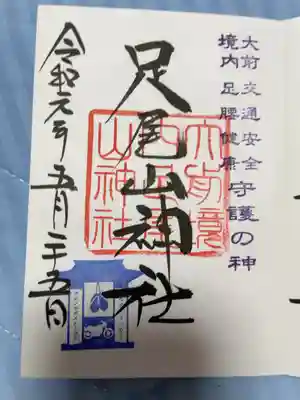 大前 交通安全
境内 足腰健康
守護の神
足尾山神社
大前境
山神社
令和元年五月二十五日